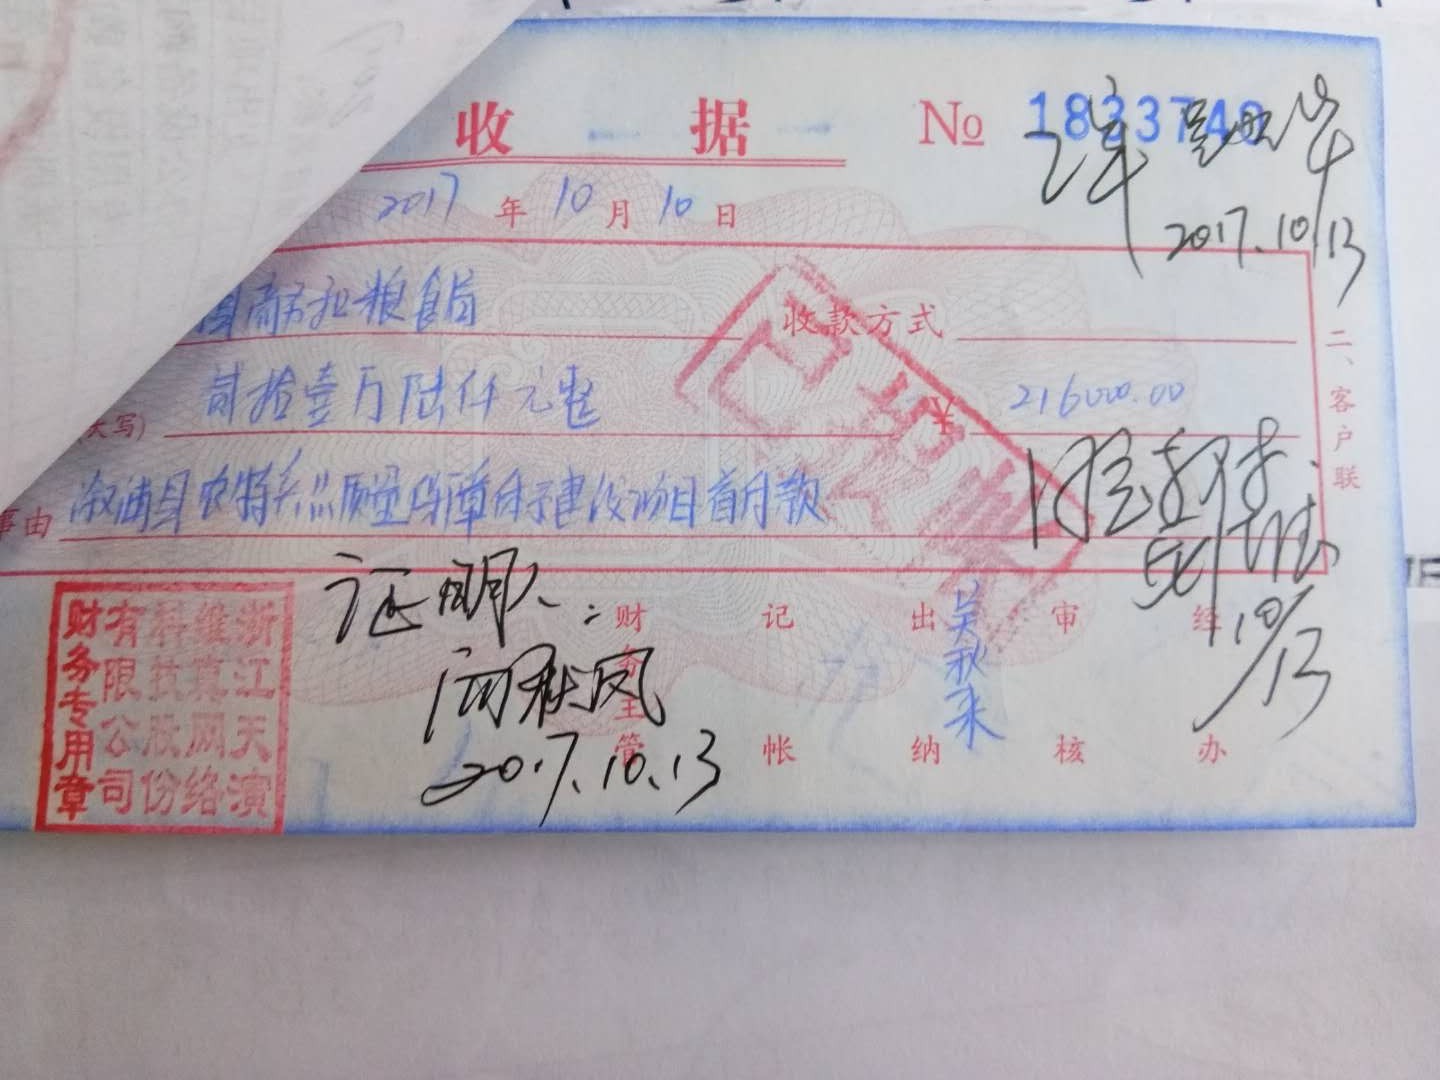 收 据 №
2017 年 10 月 10 日
2017.10.13
县商务和粮食局
收款方式
二、客户联
大写) 贰拾壹万陆仟元整 ¥ 216000.00
事由 溆浦县农特产品质量保障体系建设项目首付款
证明人:
2017.10.13
同意报销
10/13
财务主管 记帐 出纳 吴秋来 审核 经办
浙江天演维真网络科技股份有限公司
财务专用章